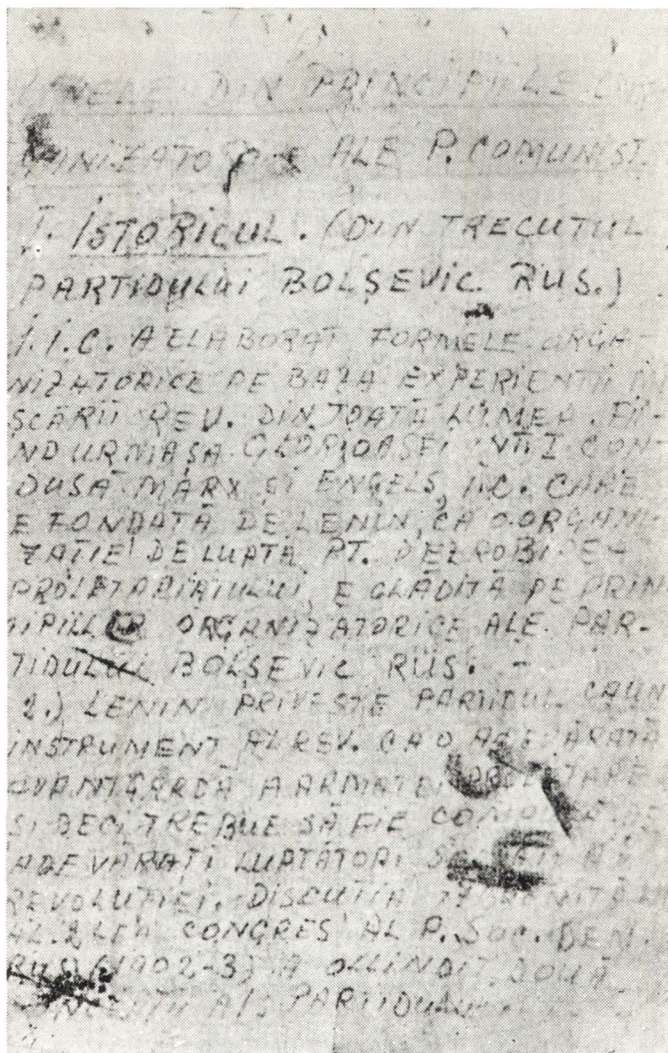 DIN PRINCIPIILE
ALE P. COMUNIST.
I. ISTORICUL. (DIN TRECUTUL
PARTIDULUI BOLȘEVIC RUS.)
I.I.C. A ELABORAT FORMELE ORGA-
NIZATORICE PE BAZA EXPERIENȚII
SCĂRII REV. DIN TOATĂ LUMEA. FI-
ND URMAȘA GLORIOASEI INT. I CON-
DUSĂ MARX ȘI ENGELS, I.C. CARE
E FONDATĂ DE LENIN, CA O ORGANI-
ZAȚIE DE LUPTĂ PT. DEZROBIRE-
PROLETARIATULUI, E CLĂDITĂ PE PRIN
ORGANIZATORICE ALE PAR-
TIDULUI BOLȘEVIC RUS. -
2.) LENIN PRIVEȘTE PARTIDUL CA UN
INSTRUMENT AL REV. CA O ADEVĂRATĂ
AVANTGARDĂ A ARMATEI
ȘI DECI TREBUE SĂ FIE
ADEVĂRAȚI LUPTĂTORI
REVOLUȚIEI. DISCUȚIA
AL 2 LEA CONGRES AL P. SOC. DEM.
RUS (1902-3) A OGLINDIT DOUĂ
PARTIDULUI